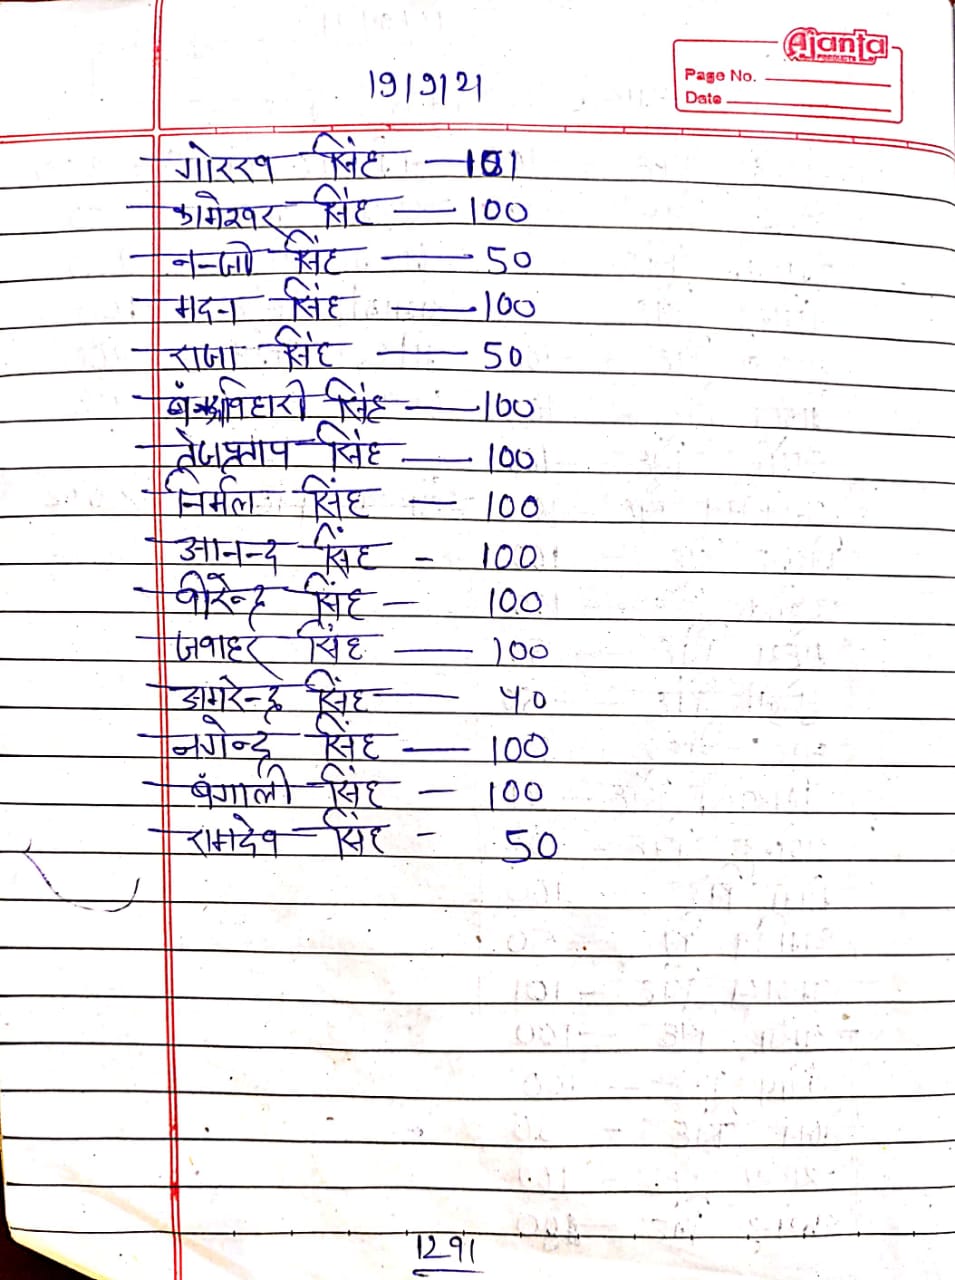 Ajanta
PRODUCTS
Page No.
Date
19/9/21
गोरख सिंह — 101
कामेश्वर सिंह — 100
नन्जी सिंह — 50
मदन सिंह — 100
राजा सिंह — 50
बंकबिहारी सिंह — 100
तेजप्रताप सिंह — 100
निर्मल सिंह — 100
आनन्द सिंह - 100
वीरेन्द्र सिंह — 100
जवाहर सिंह — 100
अमरेन्द्र सिंह — 40
नगेन्द्र सिंह — 100
बंगाली सिंह — 100
रामदेव सिंह - 50
1291